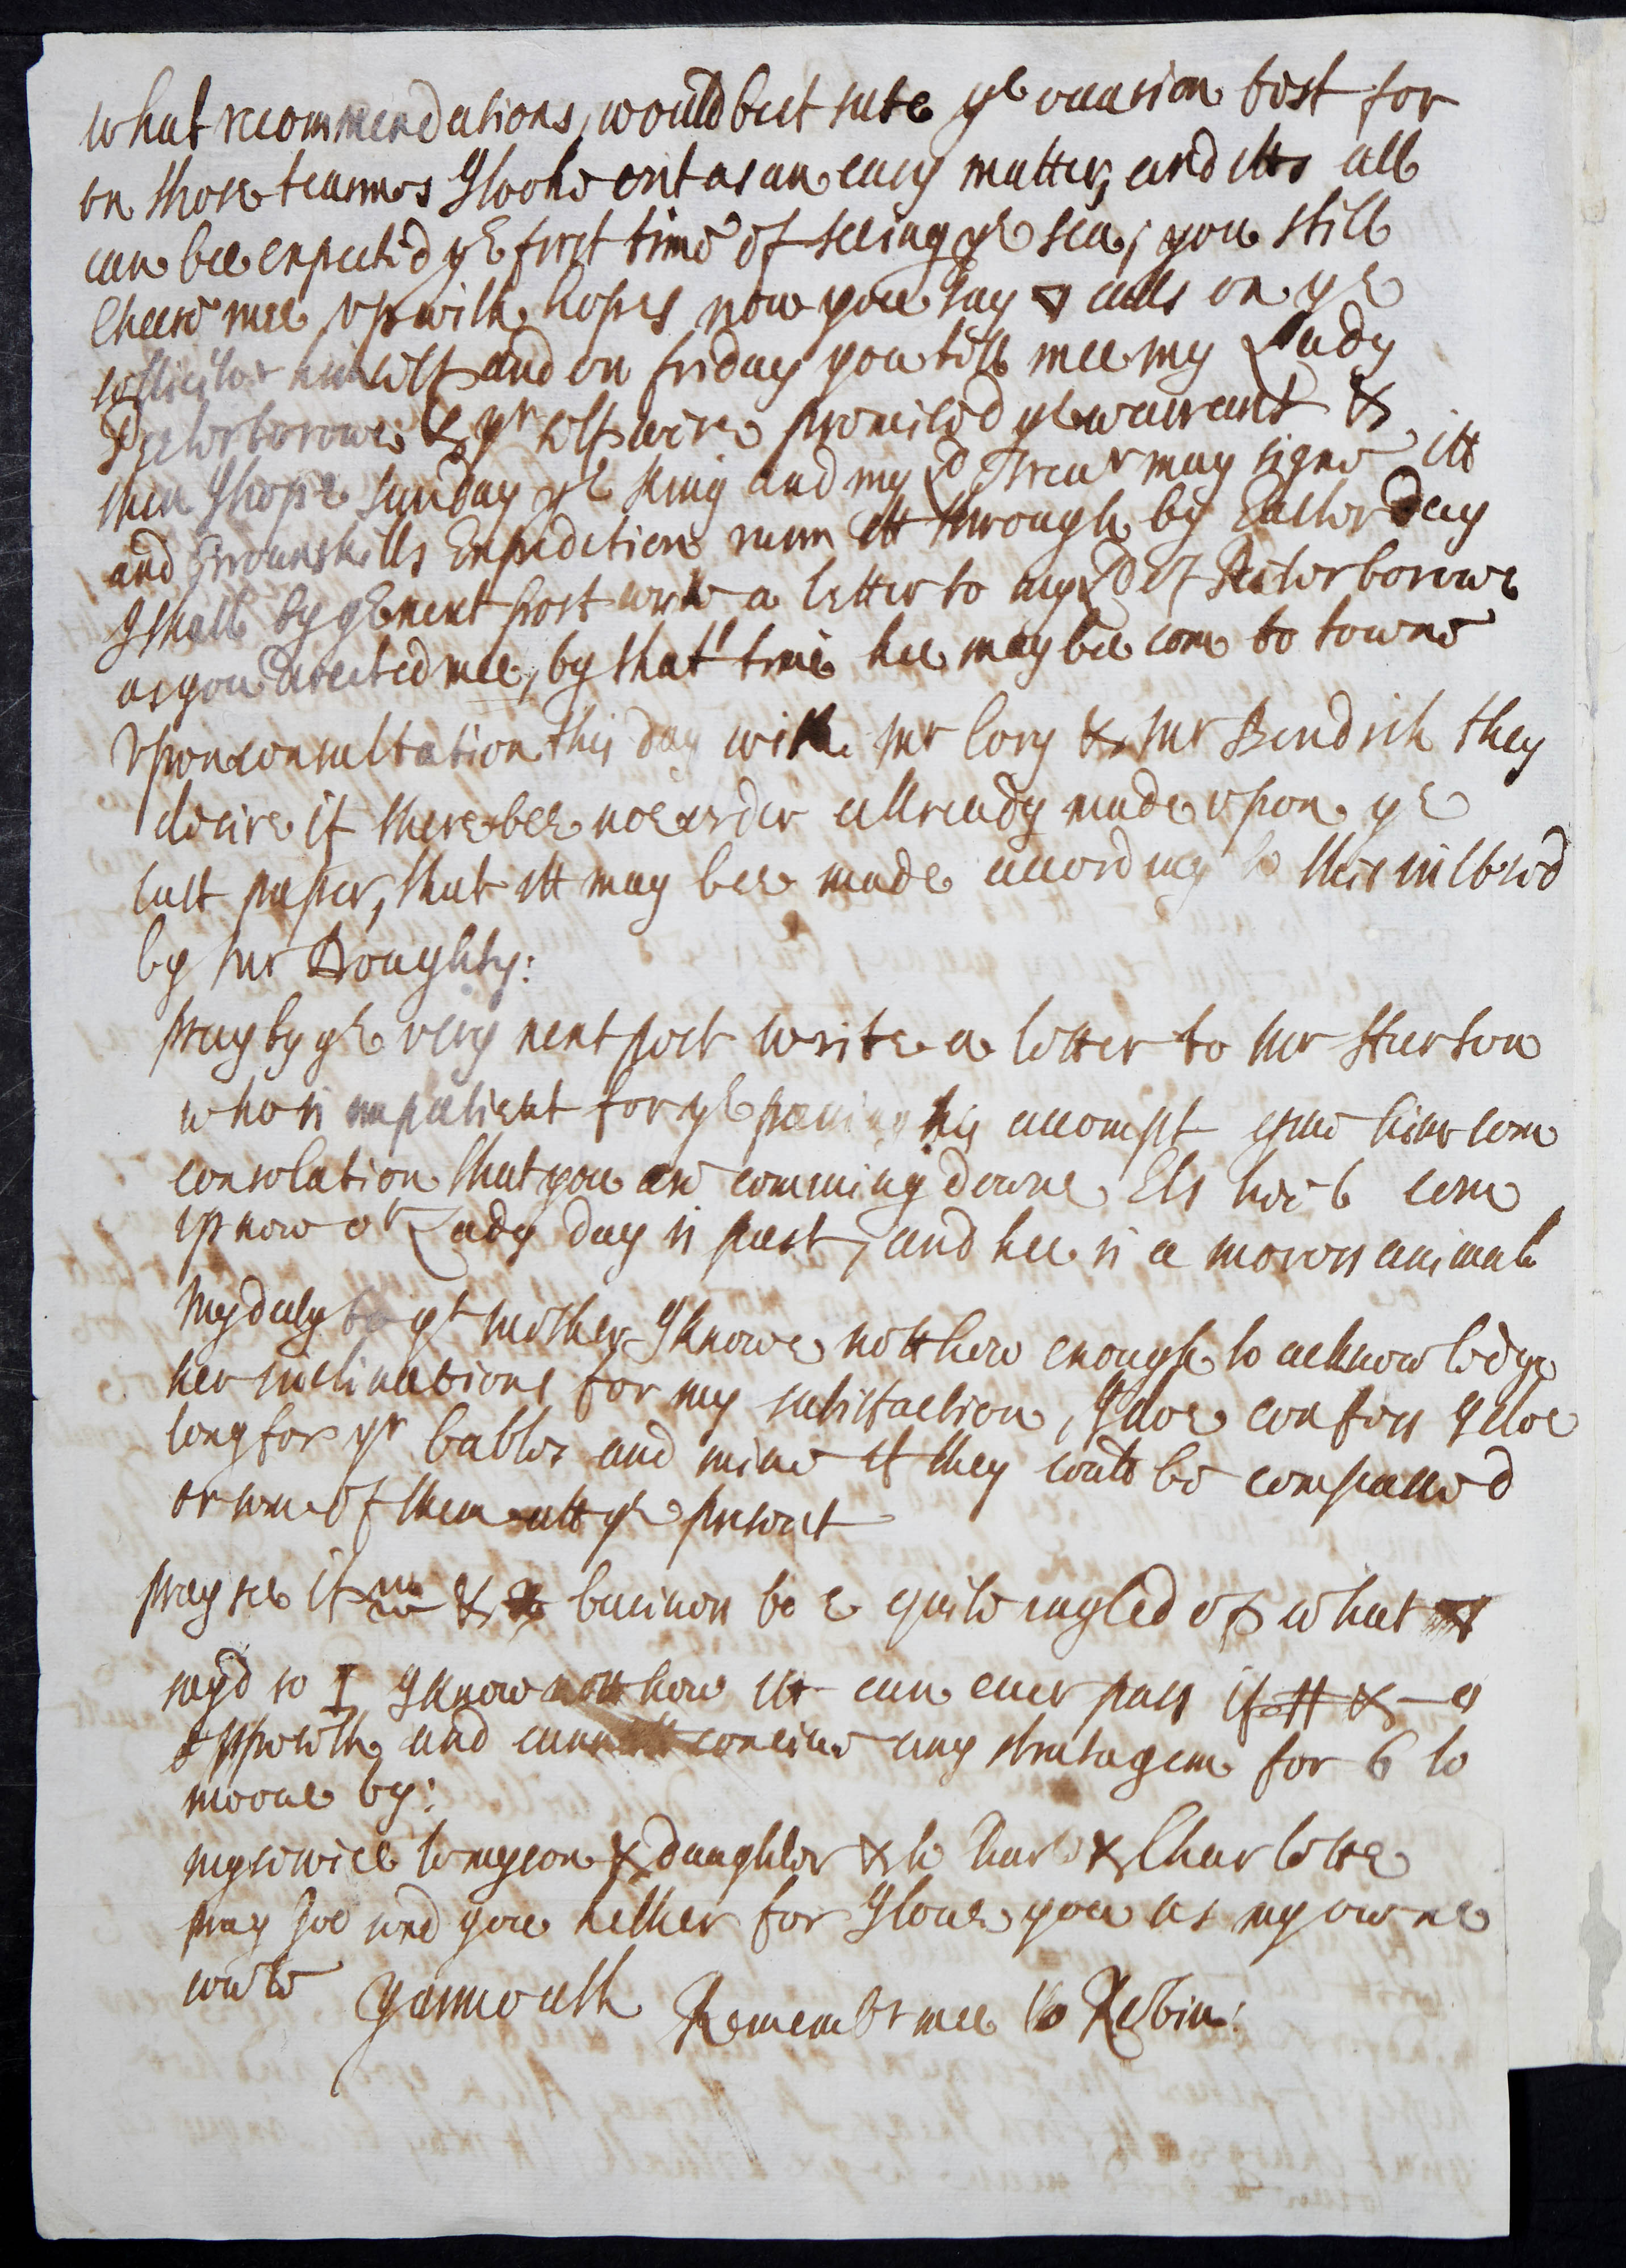 what recommendations, would but sute ye occasion best for
on those tearmes I looke ont as an easy matter, and itts all
can bee expected ye first time of seeing ye sea, you still
Cheere mee vp with hopes now you say calls on ye
sollicitor himselfe and on friday you tell mee my Lady
Peeterborowe & yr selfe were promised ye warrant &
then I hope sunday ye King and my Ld Trear may signe itt
and Grounskills Expedition runn itt through by Easter Day
I shall by ye next post write a letter to my Ld of Peeterborowe
as you directed mee, by that time hee may bee come to towne
Vpon consultation this day with Mr Cory & Mr Bendish they
desire if there bee noe order allready made vpon ye
last paper, that itt may bee made according to this inclosed
by Mr Doughty:
pray by ye very next post write a letter to Mr Sturton
who is impatient for ye passing his accompt giue him some
consolation that you are comming downe Els hee'l come
vp now or Lady day is past, and hee is a moross animal
My duty to yr Mother I knowe nott how enough to acknowledge
her inclinations for my satisfaction, I doe confess I doe
long for yr babbes and mine if they could be compassed
or some of them att ye present
pray see if & businesse bee quite angled vp what
sayd so I I know nott how itt can euer pass if
oppose itt, and cannott conceiue any stratagem for 6 to
mooue by:
my seruice to my son & daughter & to Charls & Charlotte
pray God send you hether for I loue you as my owne
soule Yarmouth Remember mee to Robin: